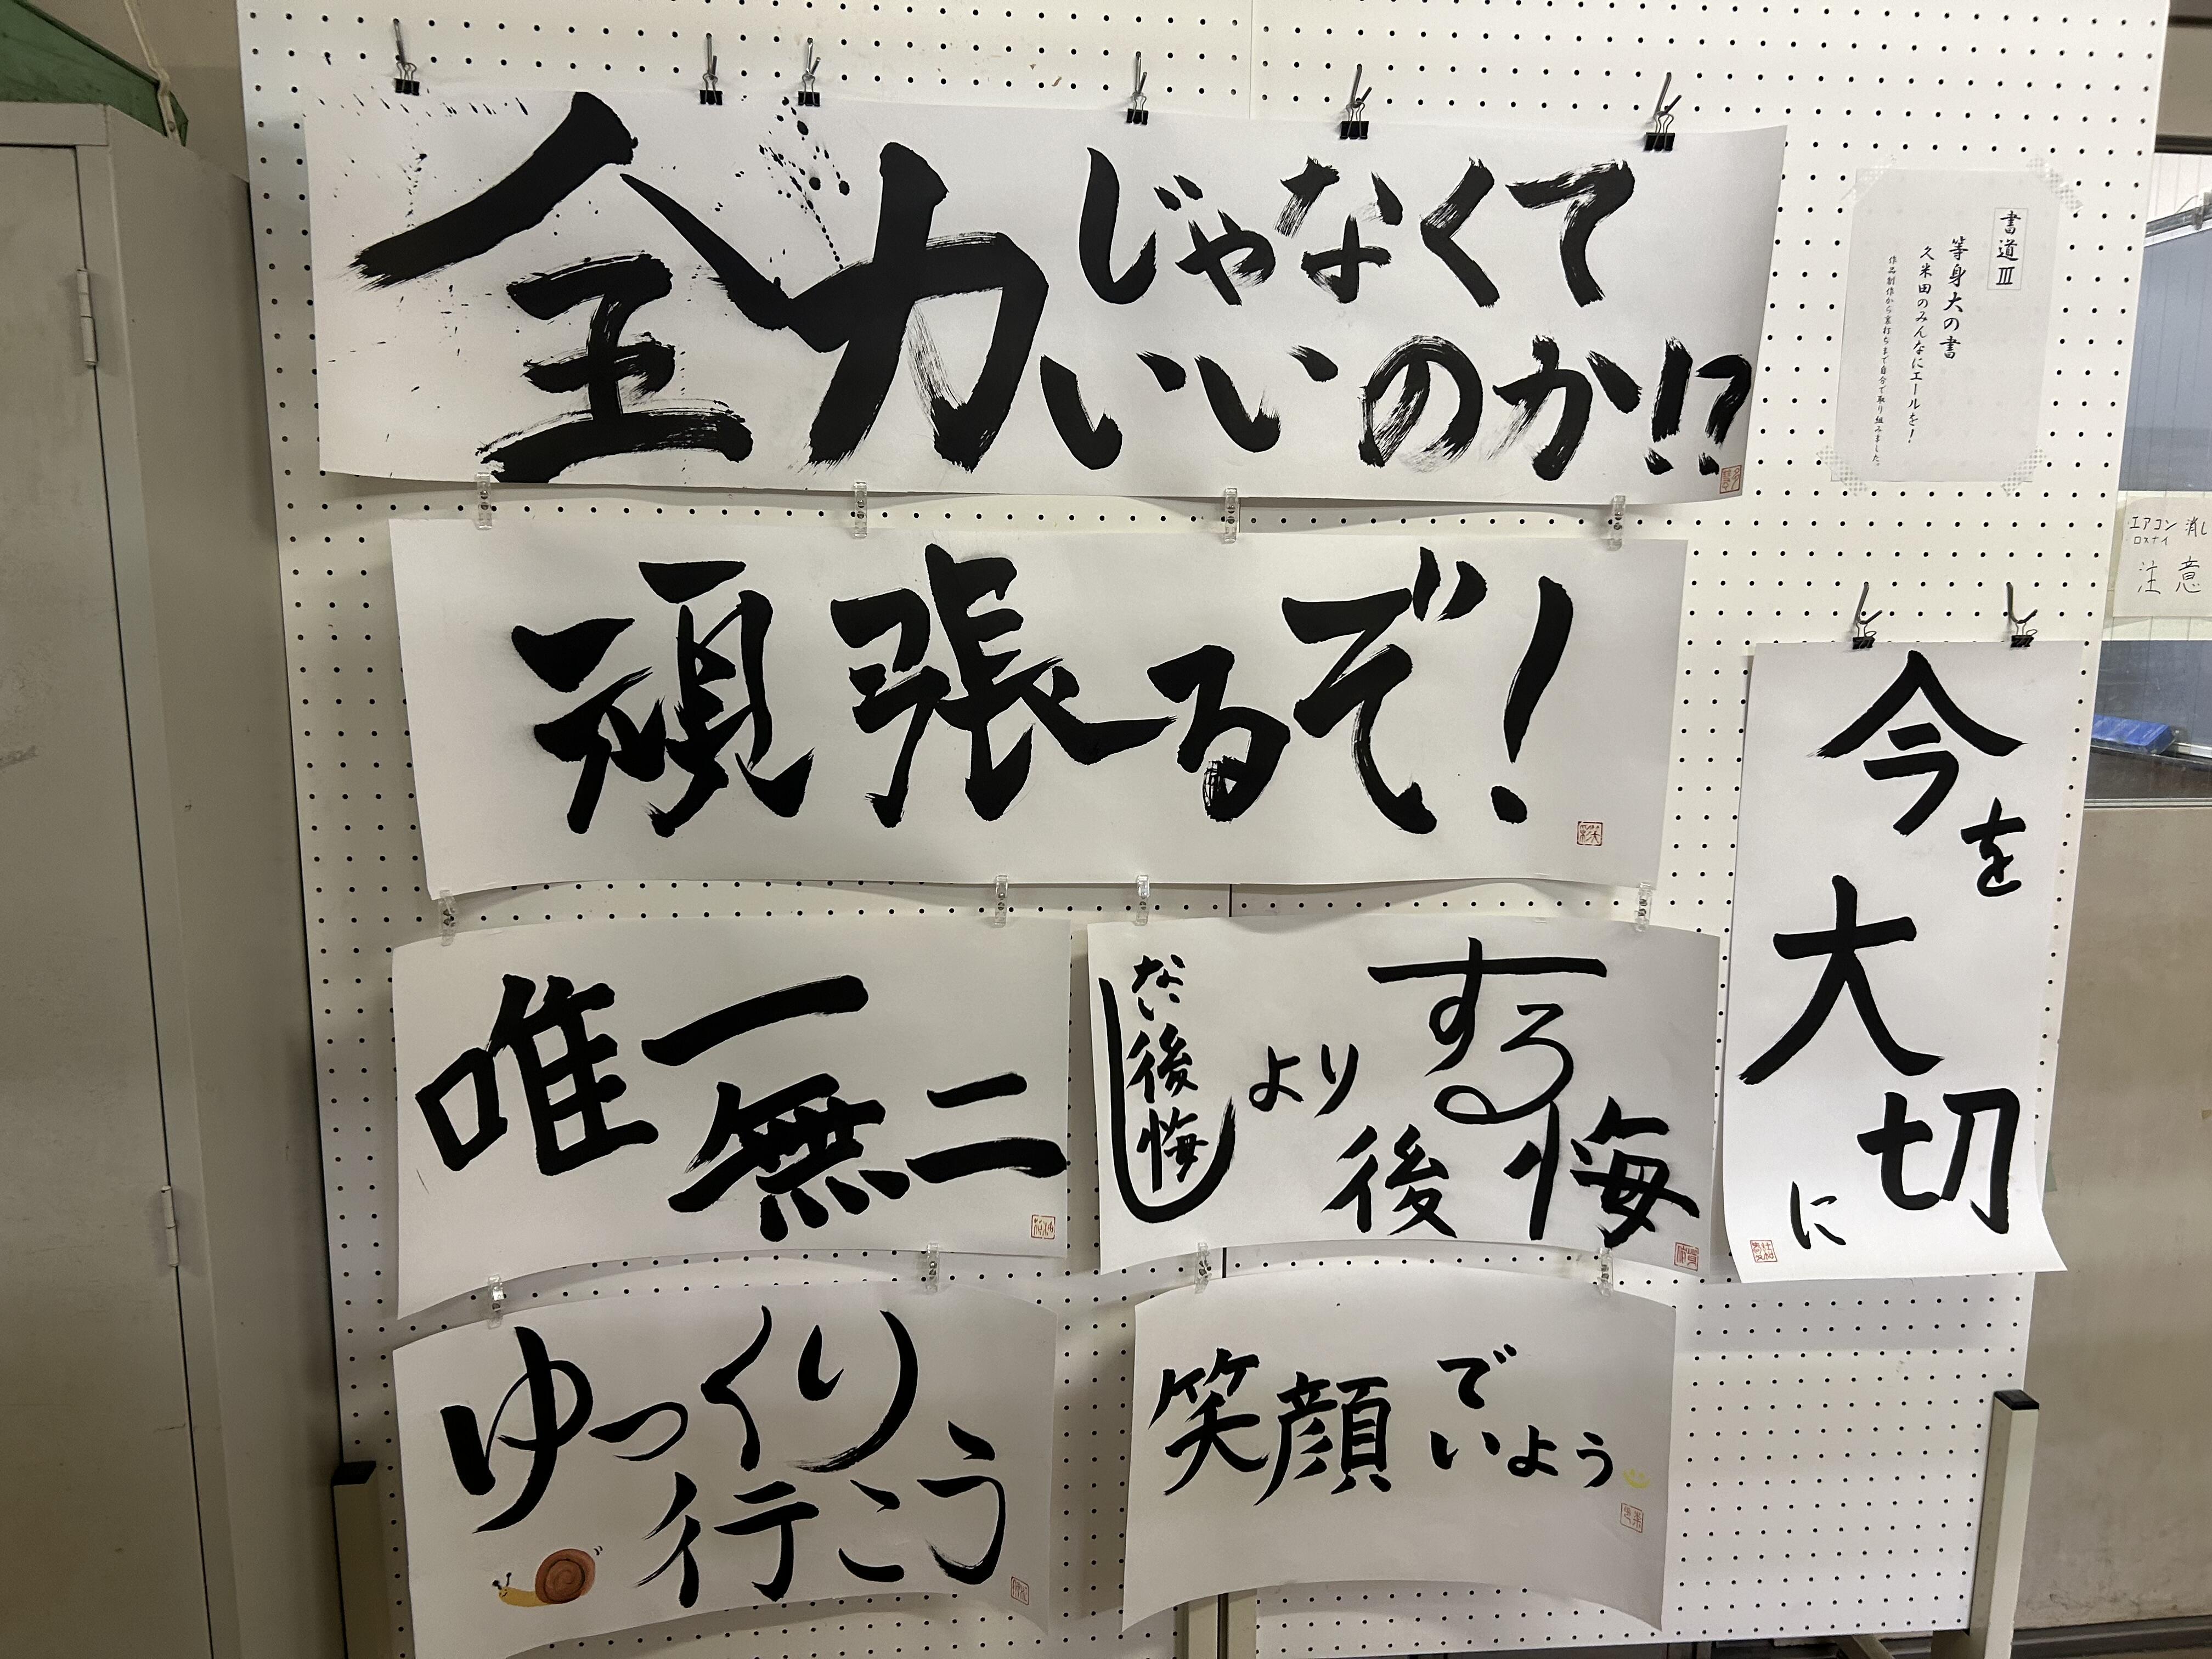 全力じゃなくて
いいのか!?
頑張るぞ!
唯一
無二
する
後悔
より
ない後悔
ゆっくり
行こう
笑顔で
いよう
今を
大切
に
書道Ⅲ
等身大の書
久米田のみんなにエールを!
作品制作から裏打ちまで自分で取り組みました。
エアコン 消し
ロスナイ
注意